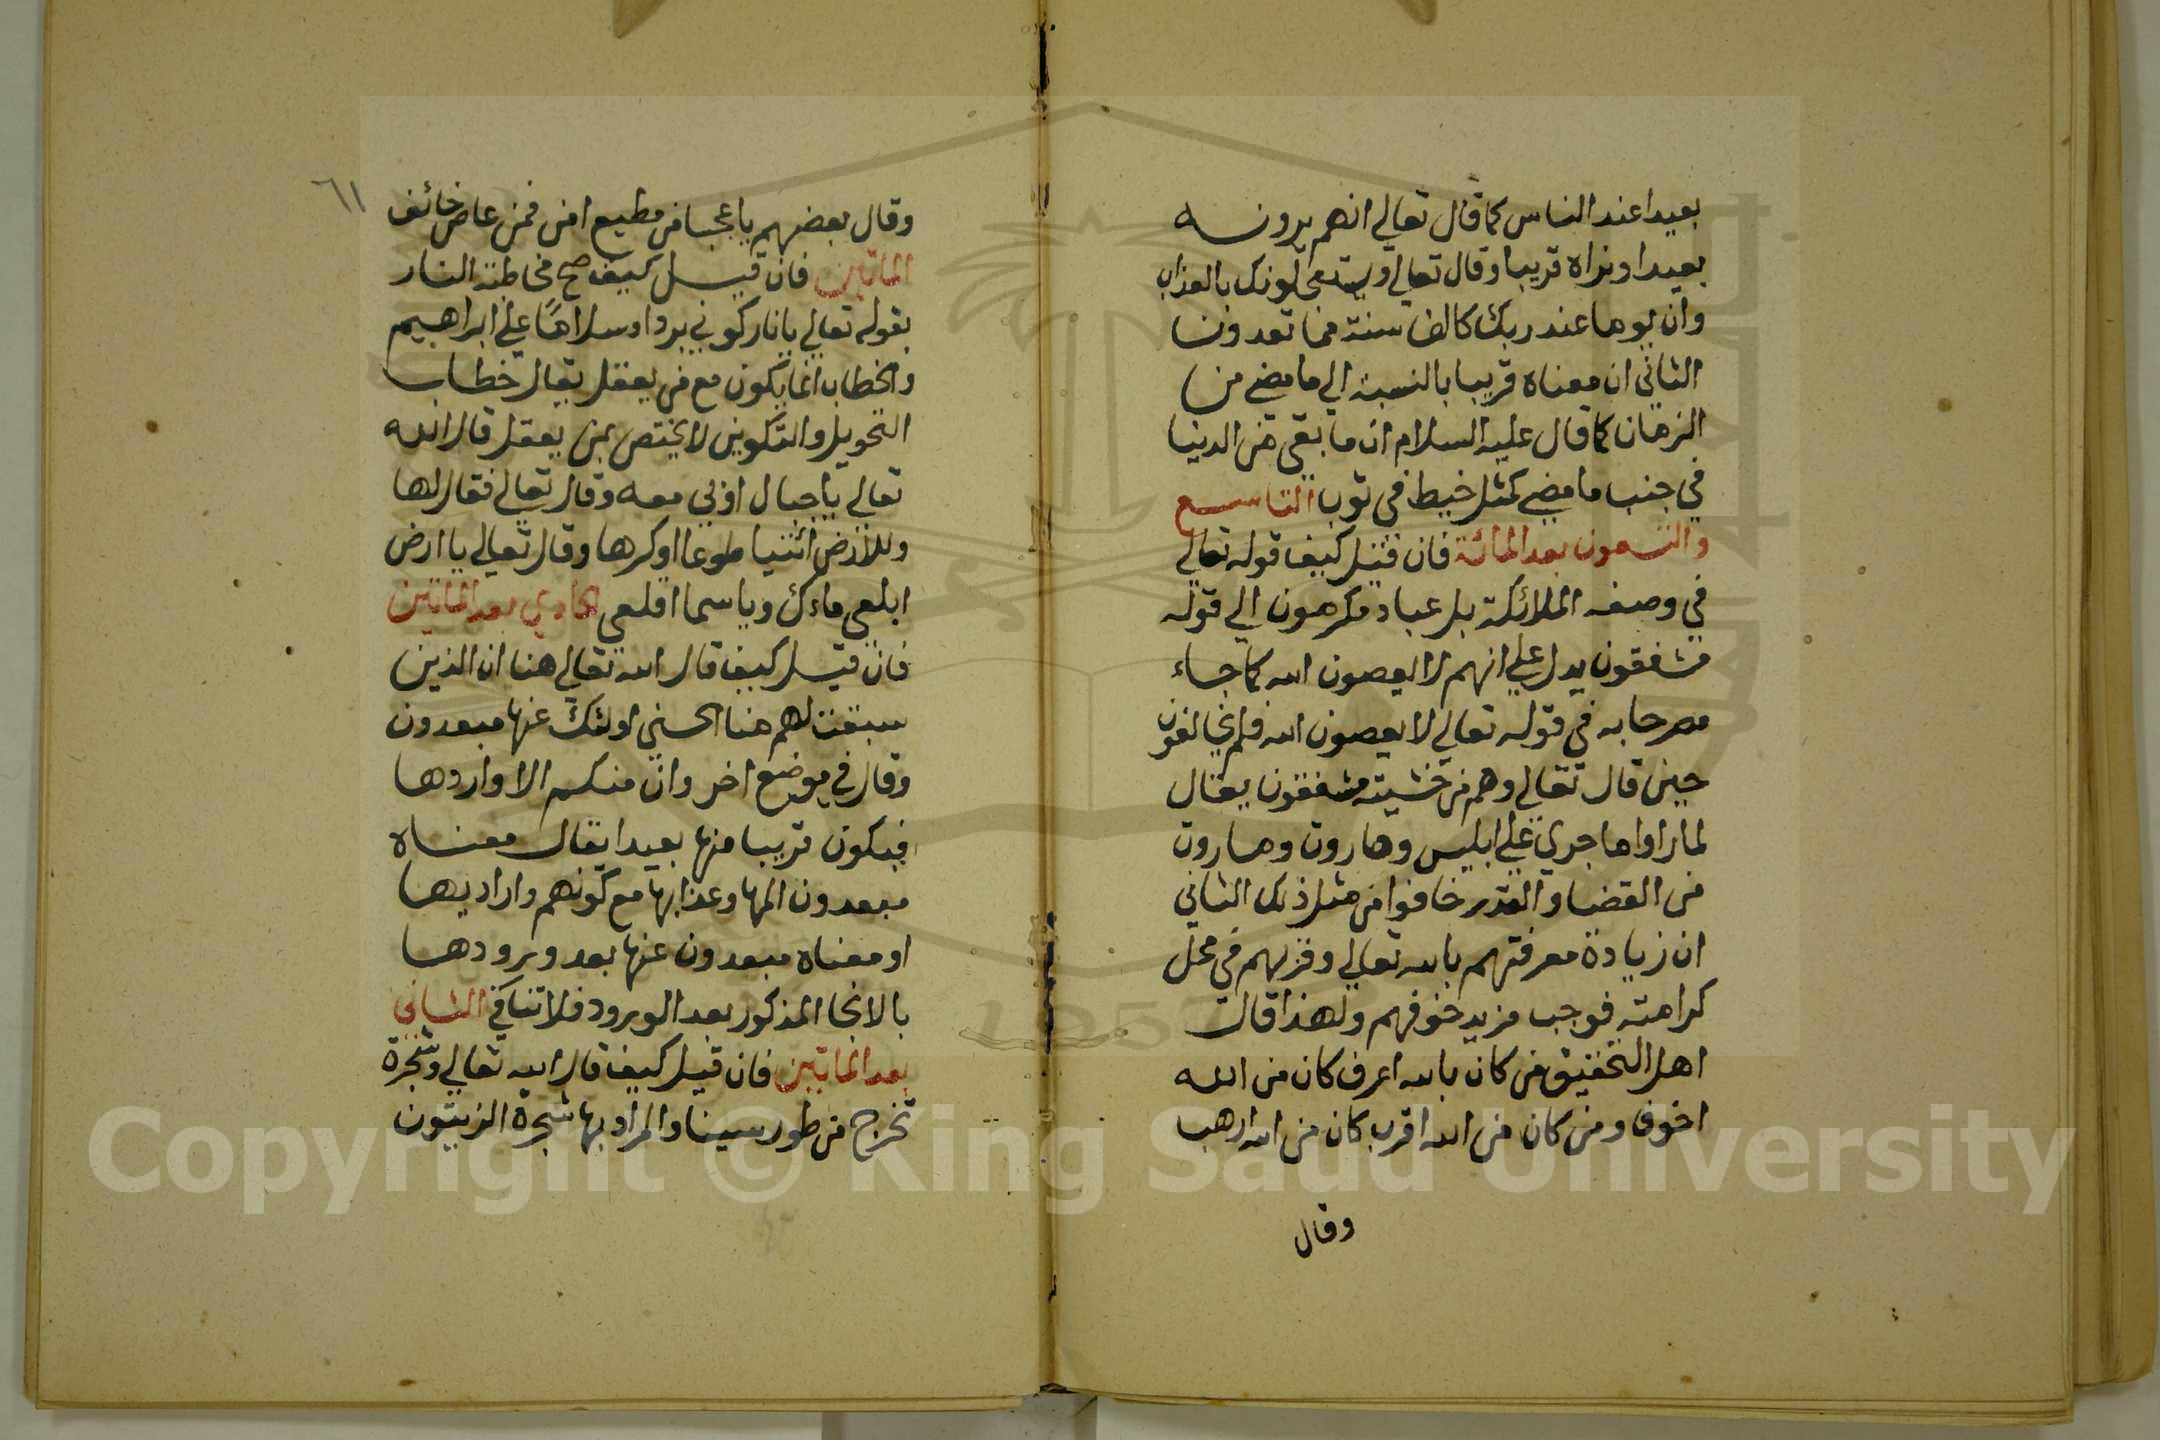 بعيدا عند الناس كما قال تعالي انهم يرونه
بعيدا ونراه قريبا وقال تعالي ويستعجلونك بالعذاب
وان يوما عند ربك كالف سنة مما تعدونا
الثاني ان معناه قريبا بالنسبة الي ما مضي من
الزمان كما قال عليه السلام ان ما بقي من الدنيا
في جنب ما مضي كمثل خيط في ثوب التاسع
والتسعون بعد المائة فان قيل كيف قوله تعالي
في وصفه الملائكة بل عباد مكرمون الي قوله
مشفقون يدل علي انهم لا يعصون الله كما جاء
مصرحا به في قوله تعالي لا يعصون الله فلم يخالفون
حين قال تعالي وهم من خشيته مشفقون يقال
لما راوا ما جري علي ابليس وهاروت وماروت
من القضا والقدر خافوا من مثل ذلك الثاني
ان زيادة معرفتهم بالله تعالي وقربهم في محل
كرامته فوجب مزيد خوفهم ولهذا قالت
اهل التحقيق من كان بالله اعرف كان من الله
اخوف ومن كان من الله اقرب كان من الله ارهب
وقال
٦١
وقال بعضهم يا عجبا من مطيع امن فمن عاص خائف
الماتين فان قيل كيف صح مخاطبة النار
بقوله تعالي يا نار كوني بردا وسلاما علي ابراهيم
والخطاب انما يكون مع من يعقل يقال خطاب
التحويل والتكوين لا يختص بمن يعقل قال الله
تعالي يا جبال اوبي معه وقال تعالي فقال لها
وللارض ائتيا طوعا او كرها وقال تعالي يا ارض
ابلعي ماءك ويا سما اقلعي الحادي بعد الماتين
فان قيل كيف قال الله تعالي هنا ان الذين
سبقت لهم منا الحسني اولئك عنها مبعدون
وقال في موضع اخر وان منكم الا واردها
فيكون قريبا منها بعيدا يقال معناه
مبعدون المها وعذابها مع كونهم وارديها
او معناه مبعدون عنها بعد ورودها
بالانجا المذكور بعد الورود فلا تنافي الثاني
بعد الماتين فان قيل كيف قال الله تعالي وشجرة
تخرج من طور سينا والمراد بها شجرة الزيتون
Copyright © King Saud University
1957